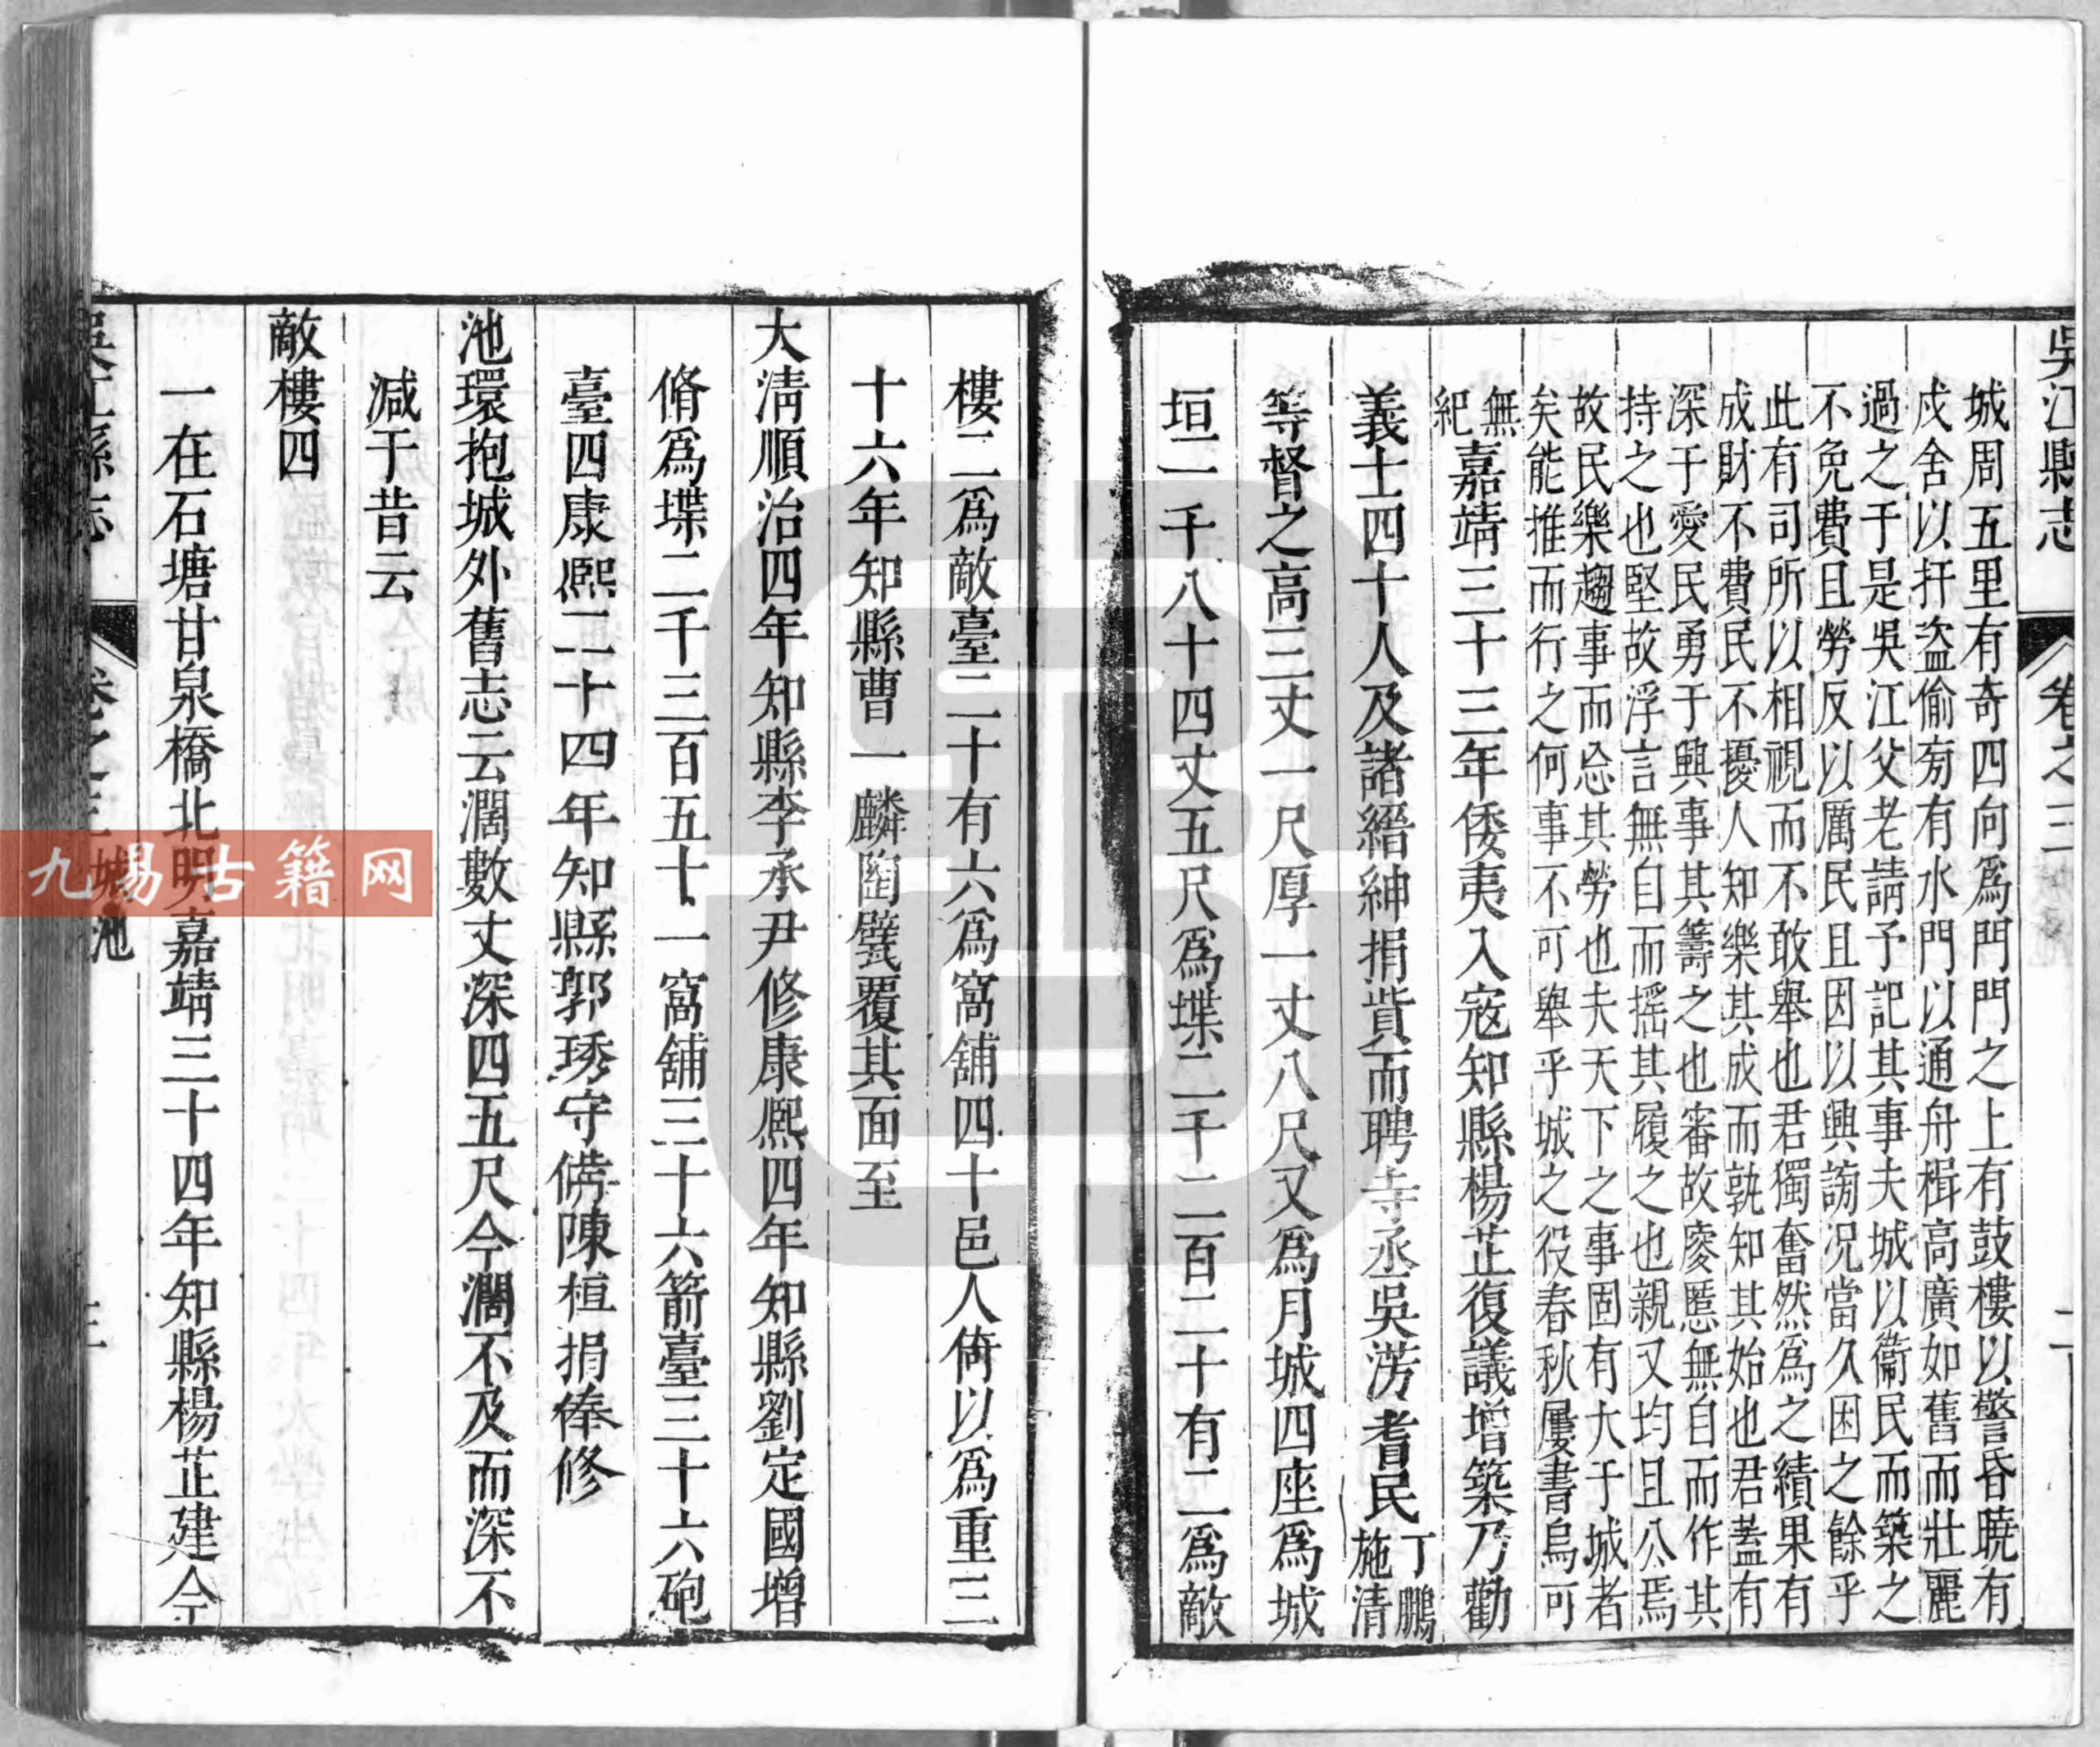 吳江縣志
卷之三
城周五里有奇四向爲門門之上有鼓樓以警昏曉有
戍舍以扞盜偷旁有水門以通舟楫高廣如舊而壯麗
過之于是吳江父老請予記其事夫城以衞民而築之
不免費且勞反以厲民且因以興謗况當久困之餘乎
此有司所以相視而不敢舉也君獨奮然爲之績果有
成財不費民不擾人知樂其成而孰知其始也君蓋有
深于愛民勇于興事其籌之也審故窾慝無自而作其
持之也堅故浮言無自而摇其履之也親又均且公焉
故民樂趨事而忘其勞也夫天下之事固有大于城者
矣能推而行之何事不可舉乎城之役春秋屢書烏可
無
紀
嘉靖三十三年倭夷入寇知縣楊芷復議增築乃勸
義士四十人及諸縉紳捐貲而聘寺丞吳涝耆民
丁鵬
施清
等督之高三丈一尺厚一丈八尺又爲月城四座爲城
垣一千八十四丈五尺爲堞二千二百二十有二爲敵
樓二爲敵臺二十有六爲窩舖四十邑人倚以爲重三
十六年知縣曹一麟陶甓覆其面至
大淸順治四年知縣李承尹修康熙四年知縣劉定國增
脩爲堞二千三百五十一窩舖三十六箭臺三十六砲
臺四康熙二十四年知縣郭琇守備陳桓捐俸修
池環抱城外舊志云濶數丈深四五尺今濶不及而深不
減于昔云
敵樓四
一在石塘甘泉橋北明嘉靖三十四年知縣楊芷建今
吳江縣志
卷之三
城池
三
九易古籍网